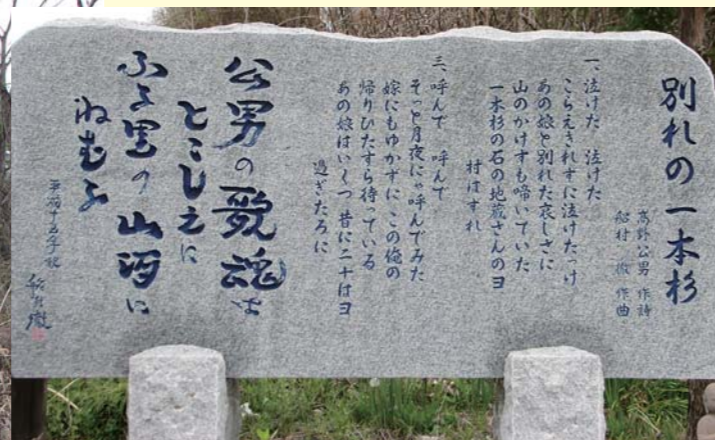 別れの一本杉
高野公男 作詩
船村 徹 作曲
一、泣けた 泣けた
こらえきれずに泣けたっけ
あの娘と別れた哀しさに
山のかけすも啼いていた
一本杉の石の地蔵さんのヨ
村はずれ
三、呼んで 呼んで
そっと月夜にゃ呼んでみた
嫁にもゆかずに この俺の
帰りひたすら待っている
あの娘はいくつ 昔に二十はヨ
過ぎたろに
公男の歌魂は
とこしえに
ふる里の山河に
ねむる
平成十五年秋
船村徹